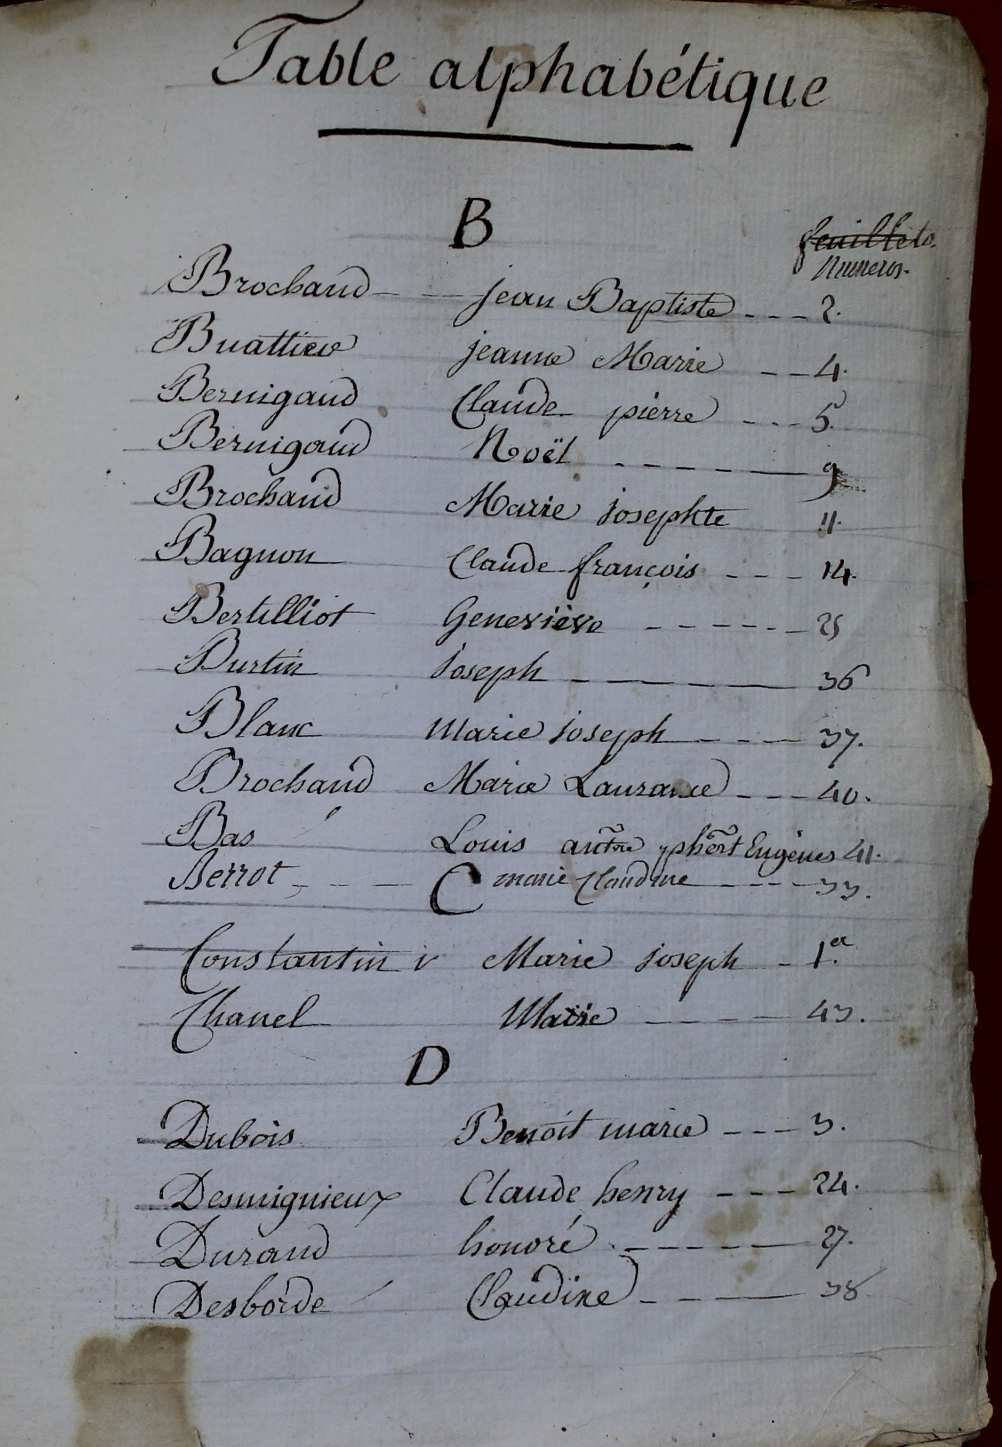 Table alphabétique
B
feuillets.
Numeros.
Brochaud jean Baptiste 2.
Buattier jeanne Marie 4.
Bernigaud Claude pierre 5.
Bernigaud Noël 9
Brochaud Marie josephte 11.
Bagnon Claude françois 14.
Bertilliot Geneviève 25
Burtin joseph 36
Blanc Marie joseph 37.
Brochaud Marie Laurance 40.
Bas Louis Eugènes 41.
Berrot marie Claudine 33.
C
Constantin Marie joseph 1.er
Chanel Marie 43.
D
Dubois Benoit marie 3.
Desmignieux Claude henry 24.
Durand honoré 27.
Desborde Claudine 38